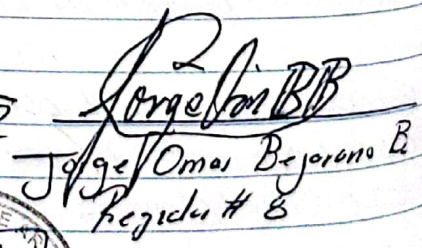 Jorge Om BB
Jorge Omar Bejarano B
Regidor # 8